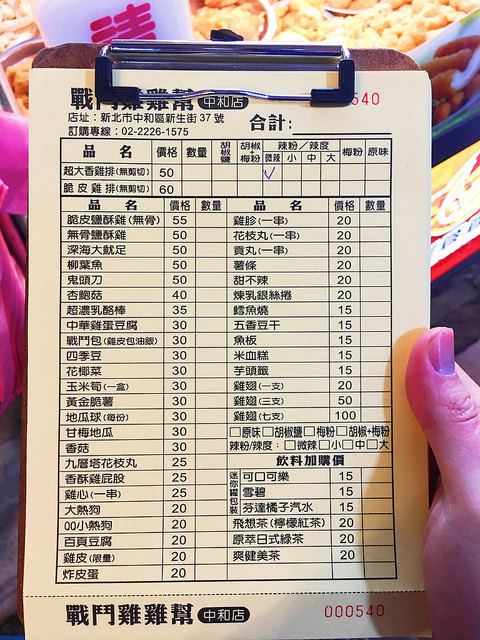 戰鬥雞雞幫 中和店
540
店址：新北市中和區新生街37號
訂購專線：02-2226-1575
合計：
品名 價格 數量 胡椒鹽 胡椒梅粉 辣粉／辣度 微辣 小 中 大 梅粉 原味
超大香雞排(無剪切) 50 ✓
脆皮雞排(無剪切) 60
品名 價格 數量 品名 價格 數量
脆皮鹽酥雞(無骨) 55 雞胗(一串) 20
無骨鹽酥雞 50 花枝丸(一串) 20
深海大魷足 50 貢丸(一串) 20
柳葉魚 50 薯條 20
鬼頭刀 50 甜不辣 20
杏鮑菇 40 煉乳銀絲捲 20
超濃乳酪棒 35 鱈魚燒 15
中華雞蛋豆腐 30 五香豆干 15
戰鬥包(雞皮包油飯) 30 魚板 15
四季豆 30 米血糕 15
花椰菜 30 芋頭籤 15
玉米筍(一盒) 30 雞翅(一支) 20
黃金脆薯 30 雞翅(三支) 50
地瓜球(每份) 30 雞翅(七支) 100
甘梅地瓜 30 □原味□胡椒鹽□梅粉□胡椒+梅粉
香菇 30 辣粉/辣度：□微辣□小□中□大
九層塔花枝丸 25 飲料加購價
香酥雞屁股 25 迷你罐包裝 可口可樂 15
雞心(一串) 25 雪碧 15
大熱狗 20 芬達橘子汽水 15
QQ小熱狗 20 飛想茶(檸檬紅茶) 20
百頁豆腐 20 原萃日式綠茶 20
雞皮(限量) 20 爽健美茶 20
炸皮蛋 20
戰鬥雞雞幫 中和店 000540